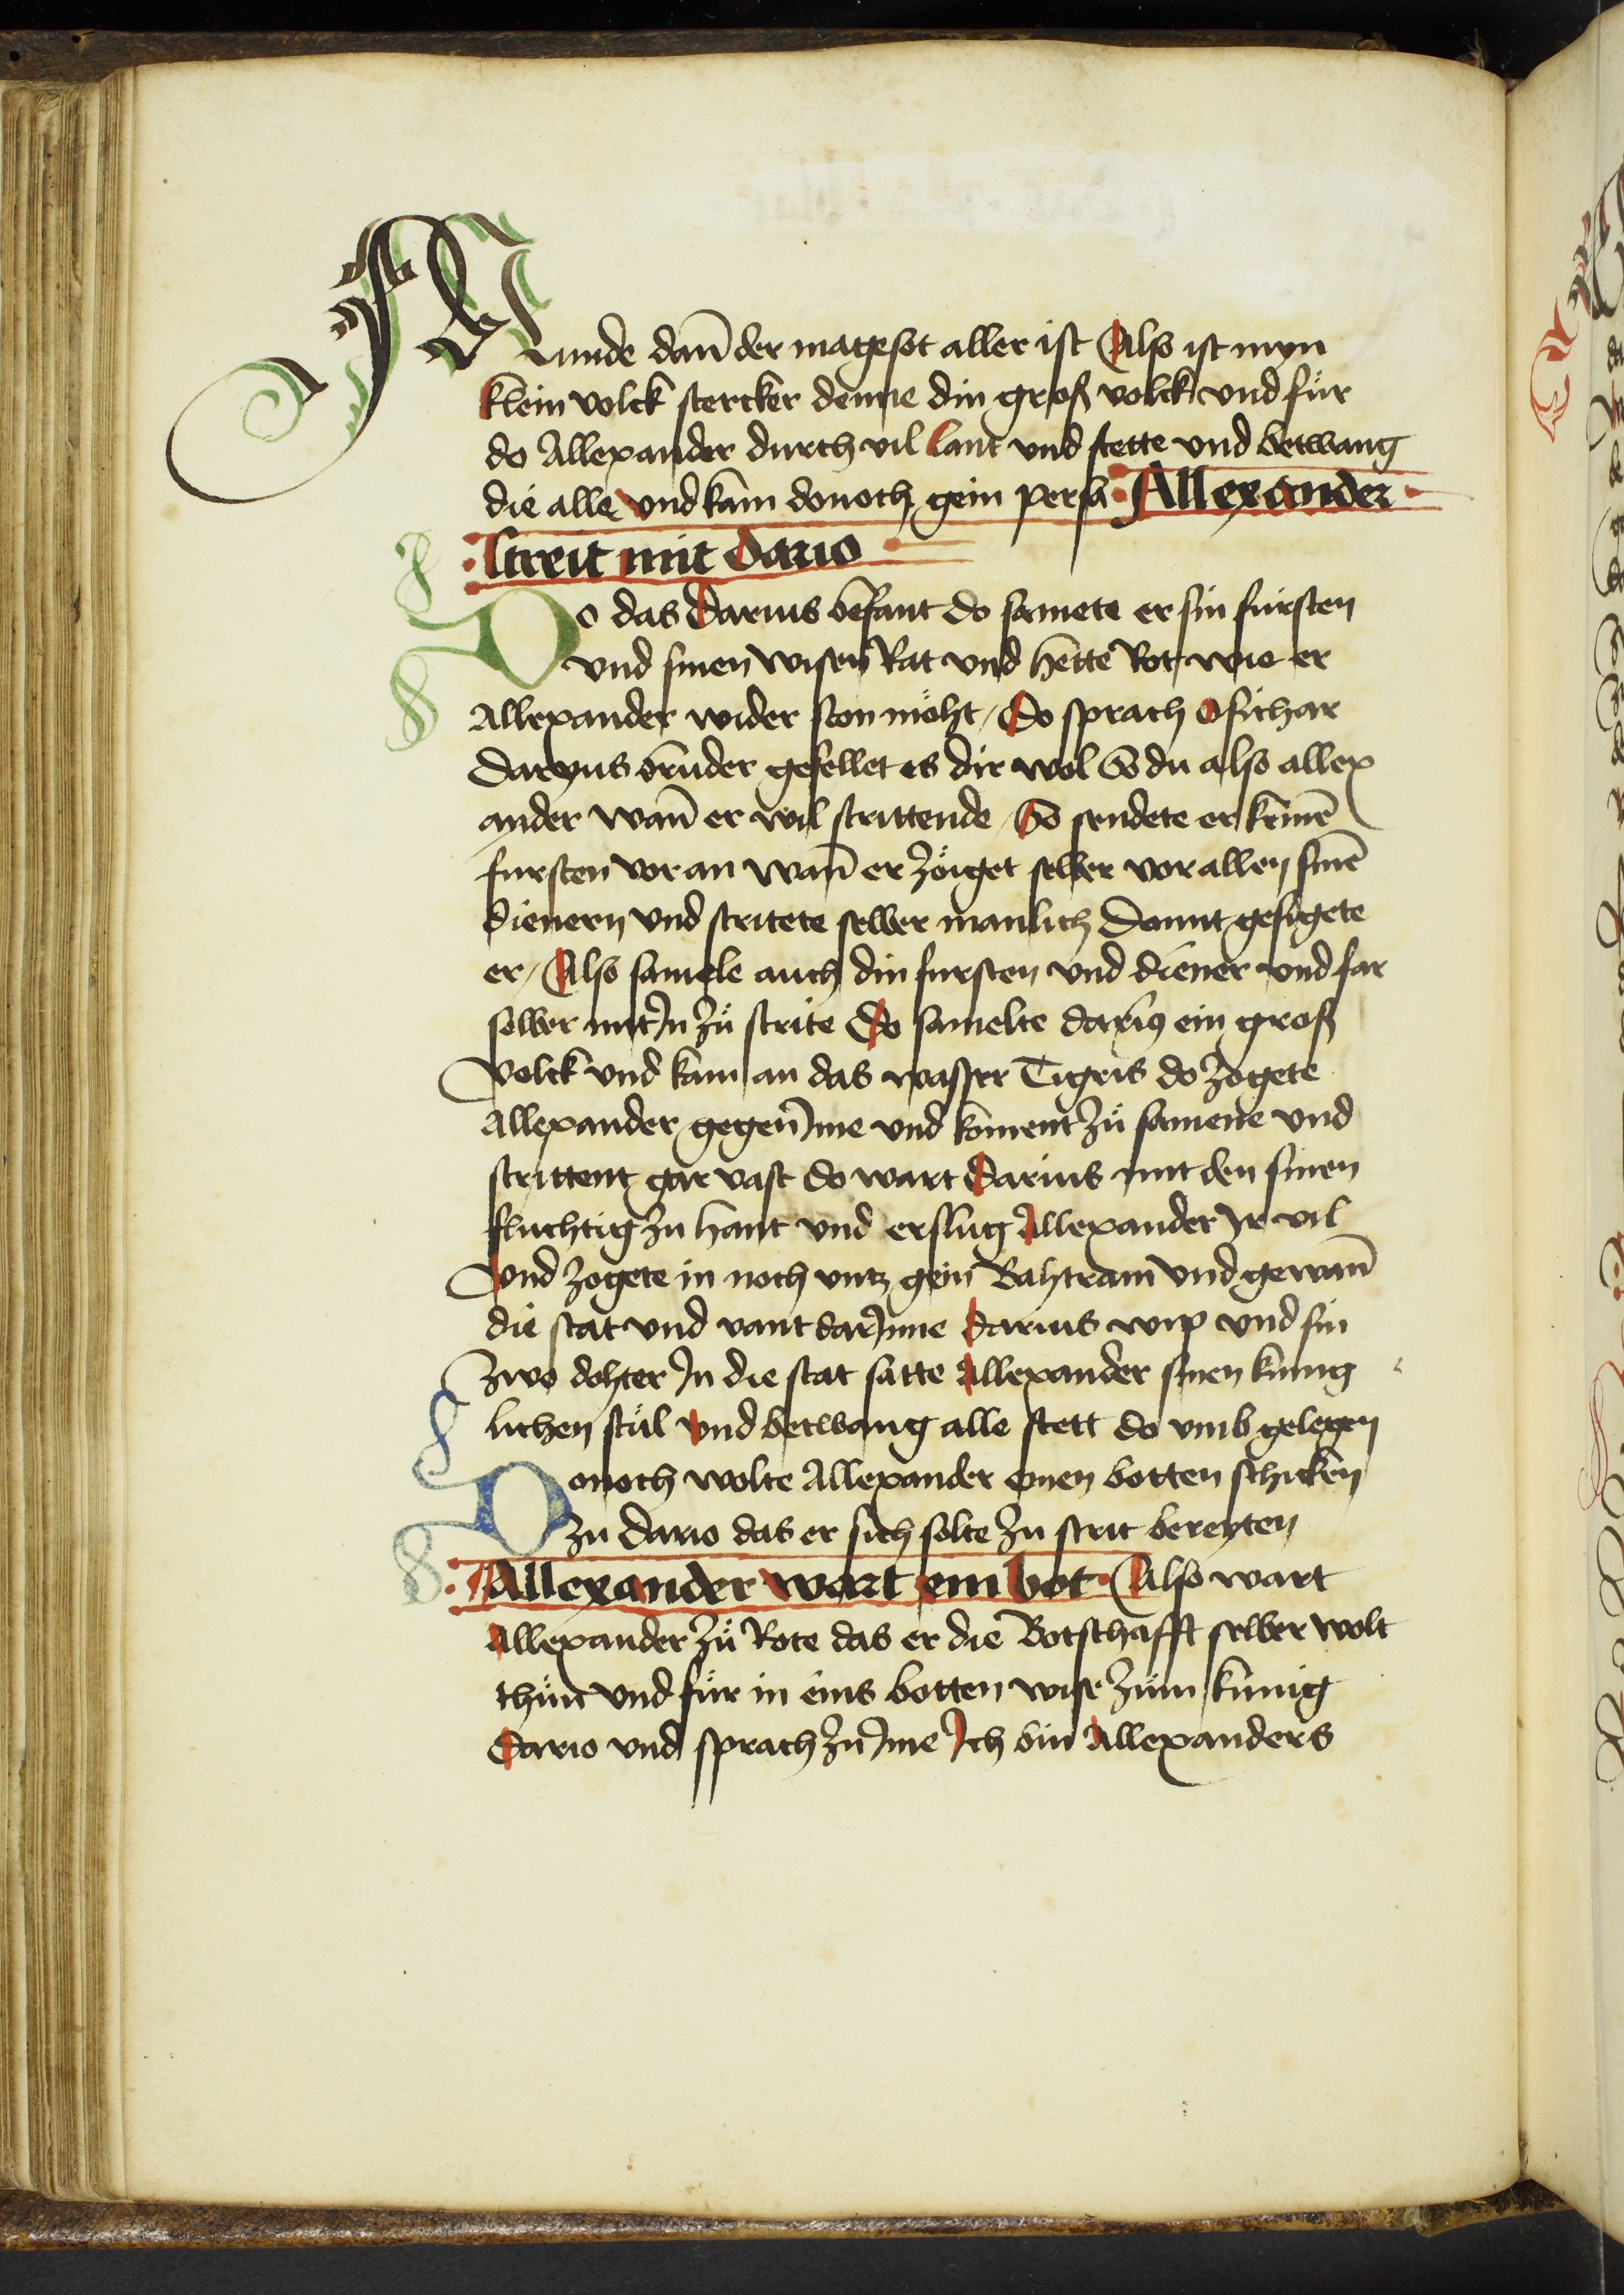 Kunde dañ der magesot aller ist Also ist myn
klein volck stercker denne din groß volck vnd fůr
do Allexander durch vil lant vnd stette vnd betwang
die alle vnd kam donoch gein persia · Allexander ·
· streit mit dario
Do das Darius befant do samete er sin fursten
vnd sinen wisen Rat vnd hette Rot wie er
Allexander wider ston möht / Do sprach Osichar
Daryus bruder gefellet es dir wol So du also allex
ander wañ er wil strittende So sendete er keinē
fursten vor an wañ er zöiget selber vor allen sinē
dienern vnd stritete selber manlich Domit gesigete
er / Also samele auch din fursten vnd diener vnd far
selber mit In zů strite Do samelte dariꝯ ein groß
volck vnd kam an das wasser Tigris do zogete
Allexander gegen Ime vnd koment zů samene vnd
strittent gar vast do wart Darius mit den sinen
fluchtig zu hant vnd erslug Allexander Ir vil
vnd zogete in noch vntz gein Bahtram vnd gewañ
die stat vnd vant dar Inne Darius wip vnd sin
zwo dohter In die stat satte Allexander sinen kunig
lichen stůl vnd betwang alle stett do vmb gelegen
Donoch wolte Allexander einen botten schicken
zu Dario das er sich solte zu strit bereyten
· Allexander wart ein bot · Also wart
Allexander zů Rote das er die Botschafft selber wolt
thůn vnd fůr in eins botten wise zům kunig
Dario vnd sprach zu Ime Ich bin Allexanders